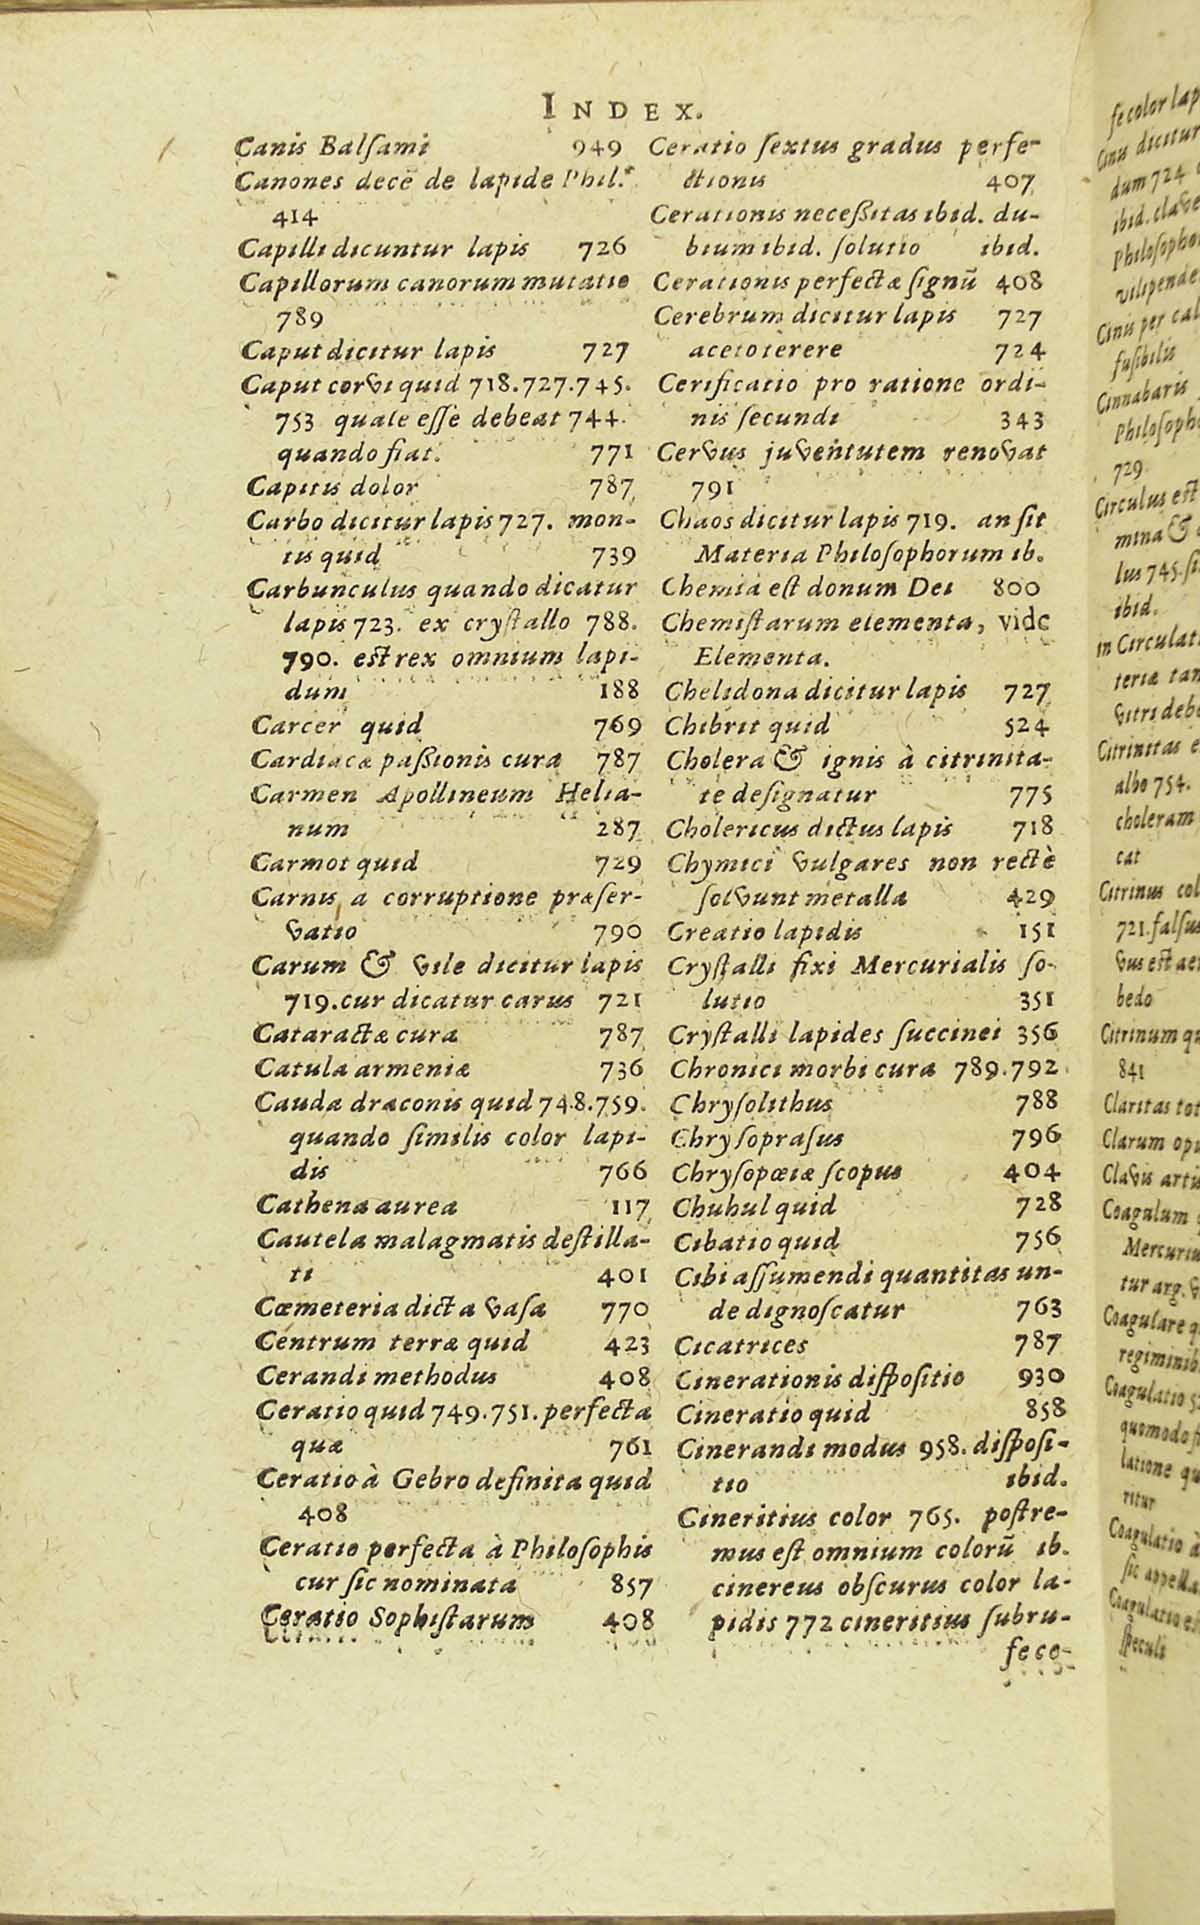 INDEX.
Canis Balſami 949
Canones decē de lapide Phil.
414
Capilli dicuntur lapis 726
Capillorum canorum mutatio
789
Caput dicitur lapis 727
Caput corvi quid 718.727.745.
753 quale eſſe debeat 744.
quando fiat. 771
Capitis dolor 787
Carbo dicitur lapis 727. mon-
tis quid 739
Carbunculus quando dicatur
lapis 723. ex cryſtallo 788.
790. eſt rex omnium lapi-
dum 188
Carcer quid 769
Cardiacæ paßionis cura 787
Carmen Apollineum Helia-
num 287
Carmot quid 729
Carnis a corruptione præſer-
vatio 790
Carum & vile dicitur lapis
719. cur dicatur carus 721
Cataractæ cura 787
Catula armeniæ 736
Caudæ draconis quid 748.759.
quando ſimilis color lapi-
dis 766
Cathena aurea 117
Cautela malagmatis deſtilla-
ti 401
Cœmeteria dicta vaſa 770
Centrum terræ quid 423
Cerandi methodus 408
Ceratio quid 749.751. perfecta
quæ 761
Ceratio à Gebro definita quid
408
Ceratio perfecta à Philoſophis
cur ſic nominata 857
Ceratio Sophiſtarum 408
Ceratio ſextus gradus perfe-
ctionis 407
Cerationis neceßitas ibid. du-
bium ibid. ſolutio ibid.
Cerationis perfectæ ſignū 408
Cerebrum dicitur lapis 727
aceto terere 724
Cerificatio pro ratione ordi-
nis ſecundi 343
Cervus juventutem renovat
791
Chaos dicitur lapis 719. an ſit
Materia Philoſophorum ib.
Chemia eſt donum Dei 800
Chemiſtarum elementa, vide
Elementa.
Chelidona dicitur lapis 727
Chibrit quid 524
Cholera & ignis à citrinita-
te deſignatur 775
Cholericus dictus lapis 718
Chymici vulgares non rectè
ſolvunt metalla 429
Creatio lapidis 151
Cryſtalli fixi Mercurialis ſo-
lutio 351
Cryſtalli lapides ſuccinei 356
Chronici morbi cura 789.792
Chryſolithus 788
Chryſopraſus 796
Chryſopœiæ ſcopus 404
Chuhul quid 728
Cibatio quid 756
Cibi aſſumendi quantitas un-
de dignoſcatur 763
Cicatrices 787
Cinerationis diſpoſitio 930
Cineratio quid 858
Cinerandi modus 958. diſpoſi-
tio ibid.
Cineritius color 765. poſtre-
mus eſt omnium colorū ib.
cinereus obſcurus color la-
pidis 772 cineritius ſubru-
ſe co-
ſe color lap
Cinis dicitur
dum 724
ibid. clave
Philoſopho
vilipende
Cinis per cal
fuſibilis
Cinnabaris
Philoſopho
729
Circulus eſt
mina &
lus 745. ſi
ibid.
in Circulati
teriæ tan
vitri debe
Citrinitas e
albo 754.
choleram
cat
Citrinus col
721. falſus
vus eſt aer
bedo
Citrinum qu
841
Claritas tot
Clarum opu
Clavis artis
Coagulum
Mercuriu
tur arg. v
Coagulare q
regiminib
Coagulatio
quomodo fi
latione qu
ritur
Coagulatio à
ſic appella
Coagulatio eſ
ſpeculi